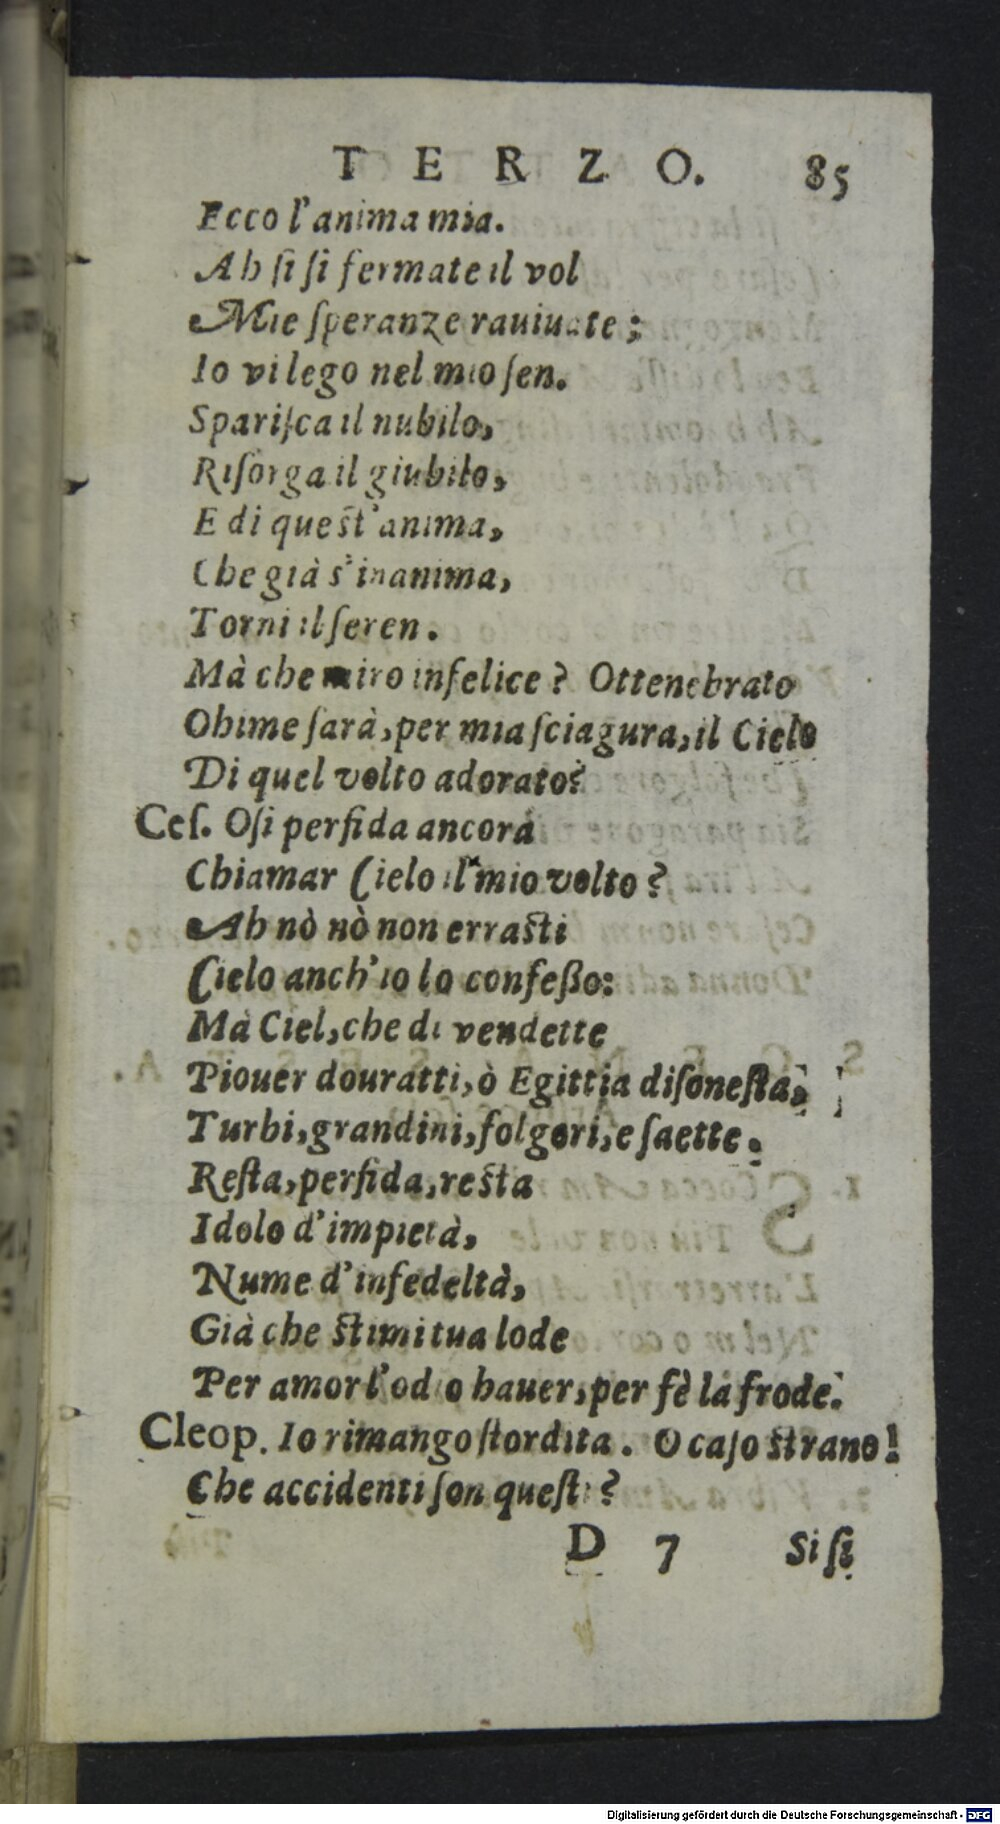 TERZO. 85
Ecco l'anima mia.
Ah ſi ſi fermate il vol
Mie ſperanze rauiuate;
Io vi lego nel mio ſen.
Spariſca il nubilo,
Riſorga il giubilo,
E di queſt'anima,
Che già s'inanima,
Torni il ſeren.
Mà che miro infelice? Ottenebrato
Ohime ſarà, per mia ſciagura, il Cielo
Di quel volto adorato?
Ceſ. Oſi perfida ancora
Chiamar Cielo il mio volto?
Ah nò nò non erraſti
Cielo anch'io lo confeßo:
Mà Ciel, che di vendette
Piouer douratti, ò Egittia diſoneſta,
Turbi, grandini, folgori, e ſaette.
Reſta, perfida, reſta
Idolo d'impietà,
Nume d'infedeltà,
Già che ſtimi tua lode
Per amor l'odio hauer, per fè la frode.
Cleop. Io rimango ſtordita. O caſo ſtrano!
Che accidenti ſon queſti?
D 7 Si ſi
Digitalisierung gefördert durch die Deutsche Forschungsgemeinschaft - DFG